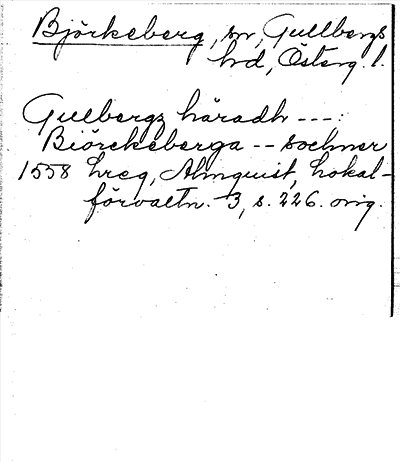 Björkeberg, sn, Gullbergs
hd, Österg. l.
Gulbergz häradh ---:
Biörckeberga -- sochner
1558 hreg, Almquist, Lokal-
förvaltn. 3, s. 226. orig.